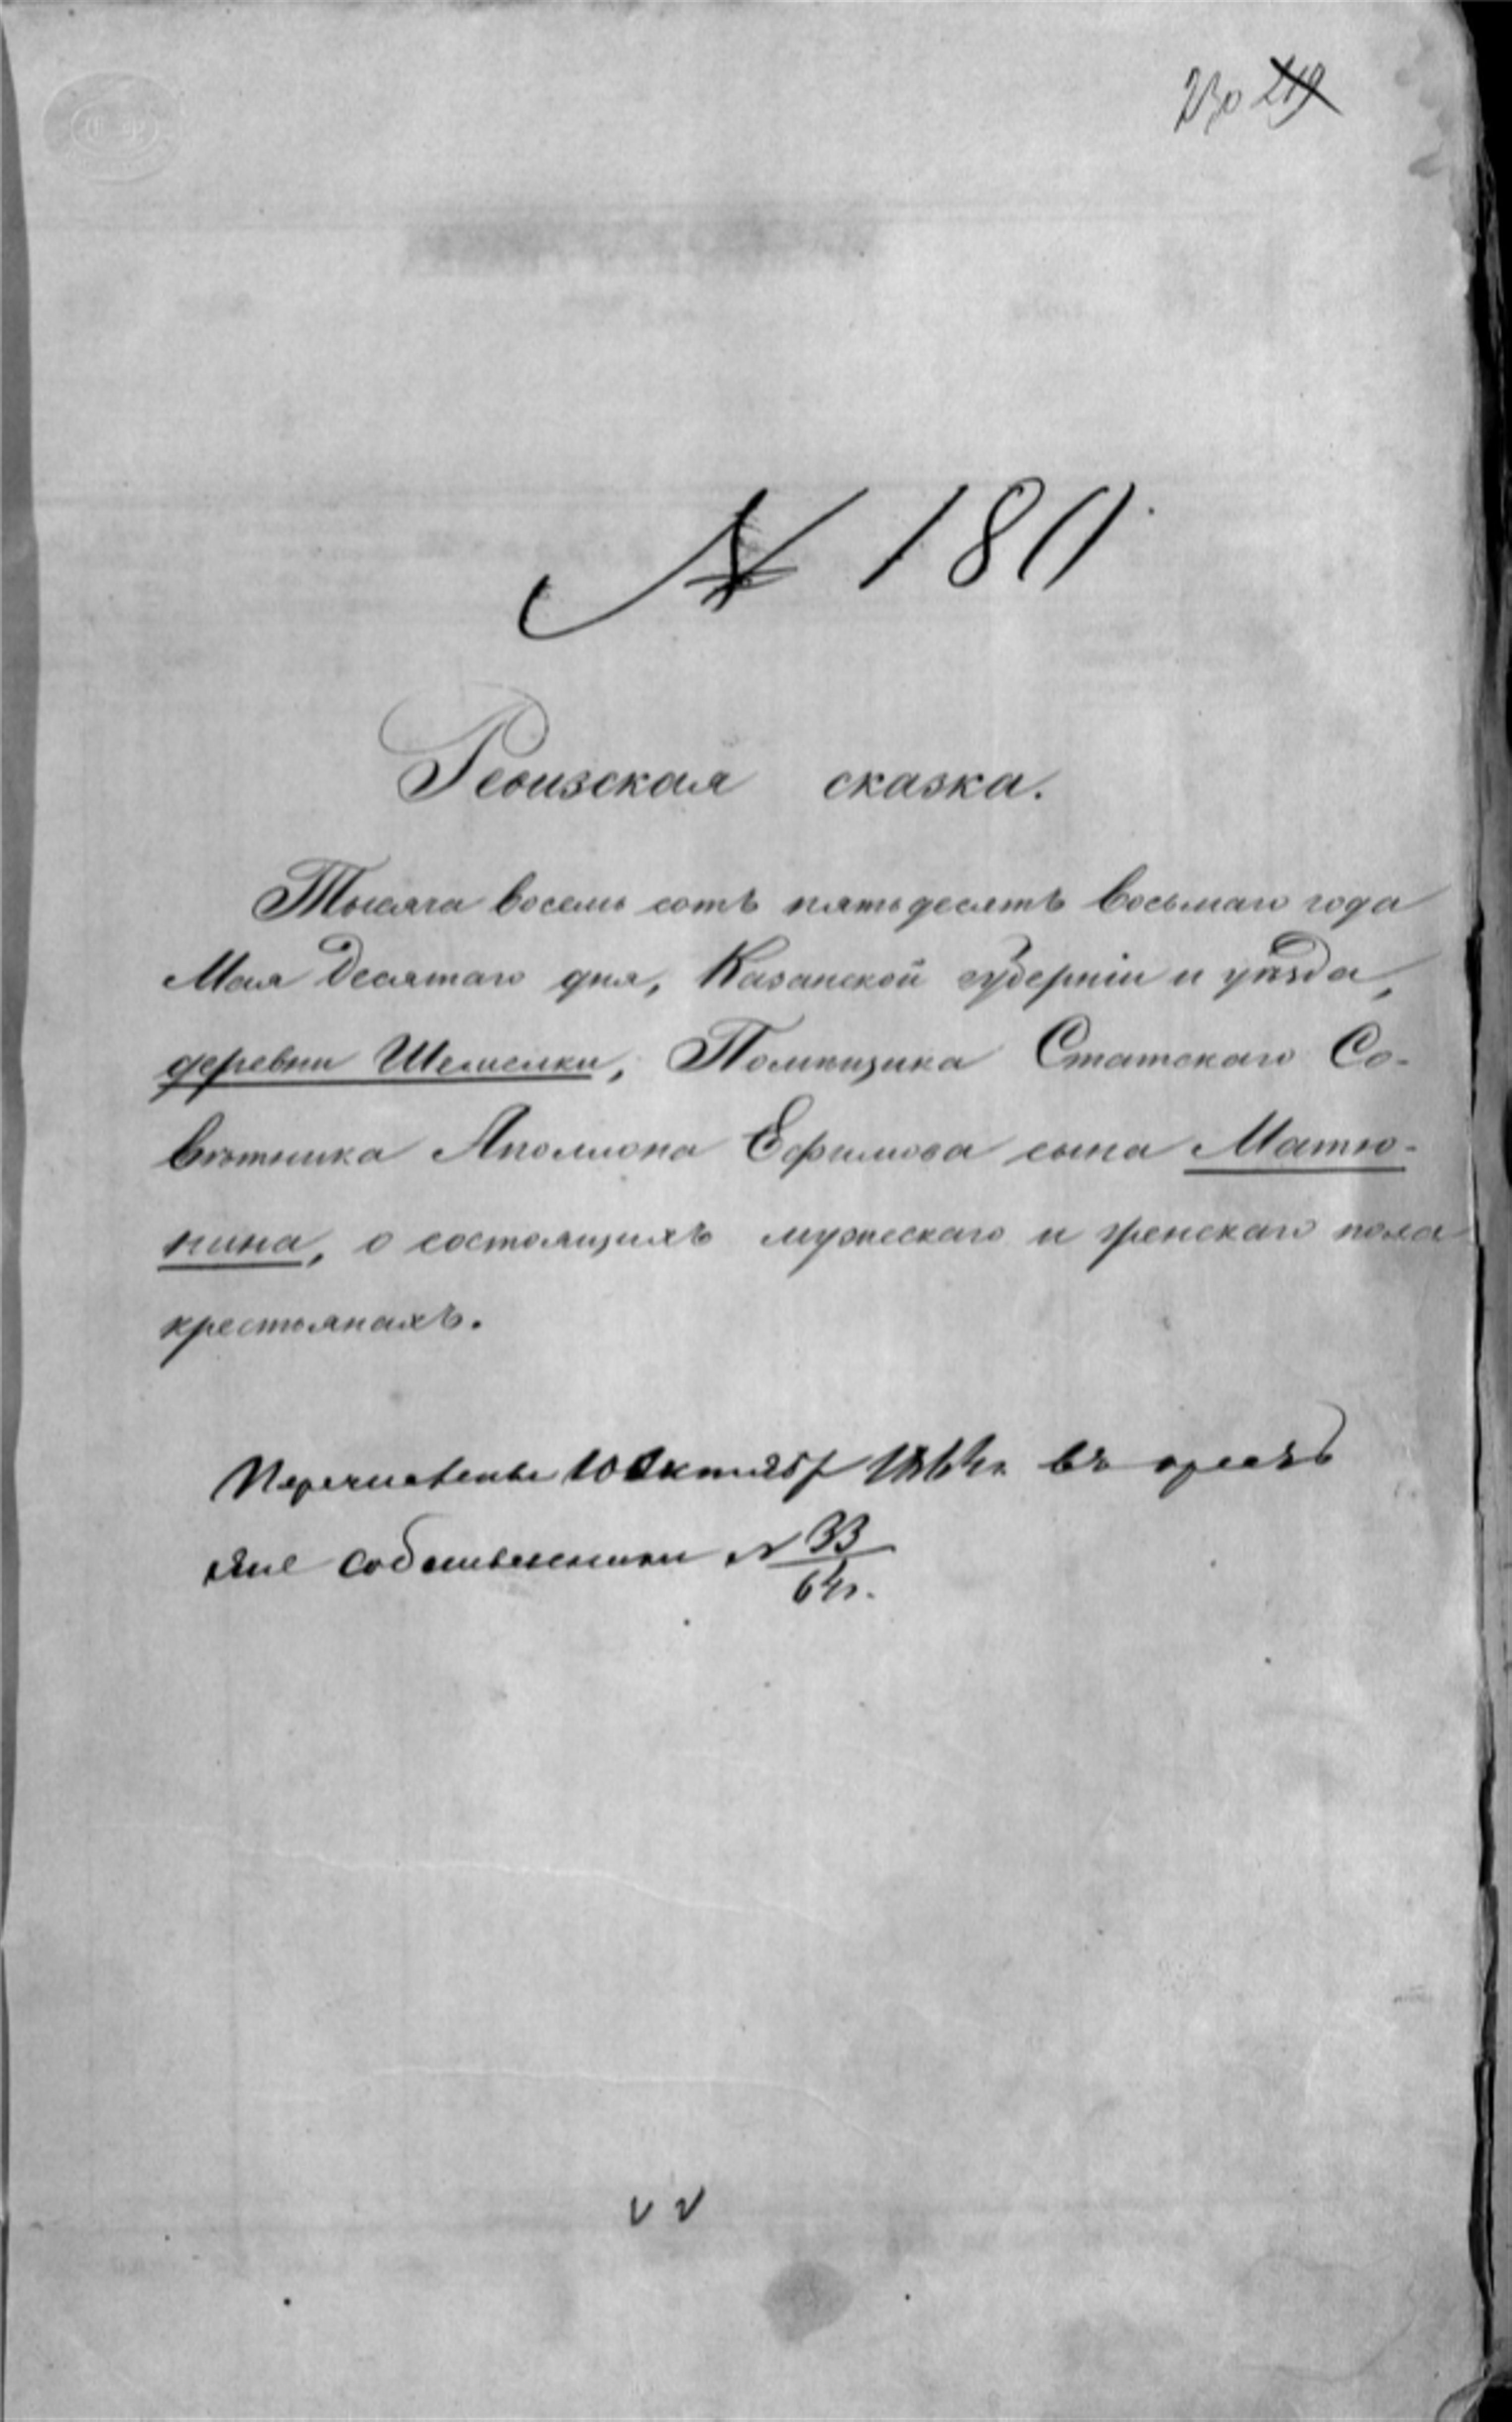 230 219
№ 180
Ревизская сказка.
Тысяча восемь сотъ пятьдесятъ восьмаго года
Мая десятаго дня, Казанской губерніи и уѣзда,
деревни Шемелки, Помѣщика Статскаго Со-
вѣтника Аполлона Ефимова сына Матю-
нина, о состоящихъ мужескаго и женскаго пола
крестьянахъ.
Перечислены 10 Октября 1864г. въ кресть
яне собственники № 33
64г.